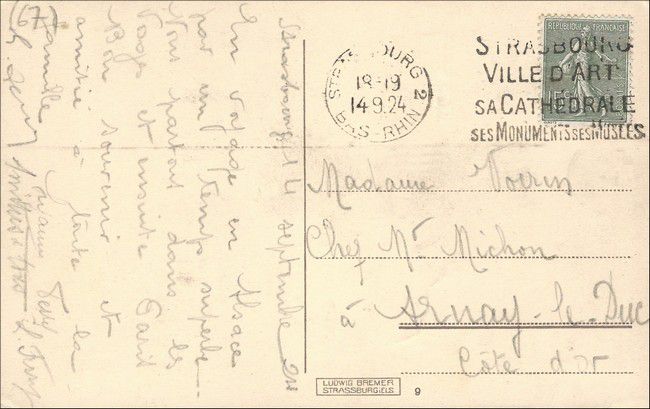 67
Strasbourg 14 septembre 24
En voyage en Alsace
par un temps superbe.
Nous partons dans les
Vosges et ensuite Paris
Bon souvenir et
amitié à toute la
famille
STRASBOURG 2
18-19
14 9.24
BAS RHIN
REPUBLIQUE FRANÇAISE
STRASBOURG
VILLE D'ART
SA CATHEDRALE
SES MONUMENTS SES MUSEES
Madame
Chez Mr Michon
à Arnay-le-Duc
Côte d'Or
LUDWIG BREMER
STRASSBURG ELS
9